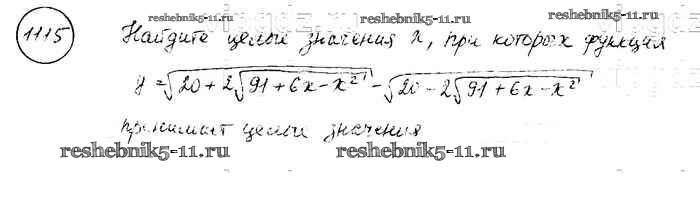 1115
reshebnik5-11.ru reshebnik5-11.ru
Найдите целые значения x, при которых функция
y = √(20 + 2√(91 + 6x - x²)) - √(20 - 2√(91 + 6x - x²))
принимает целые значения
reshebnik5-11.ru reshebnik5-11.ru